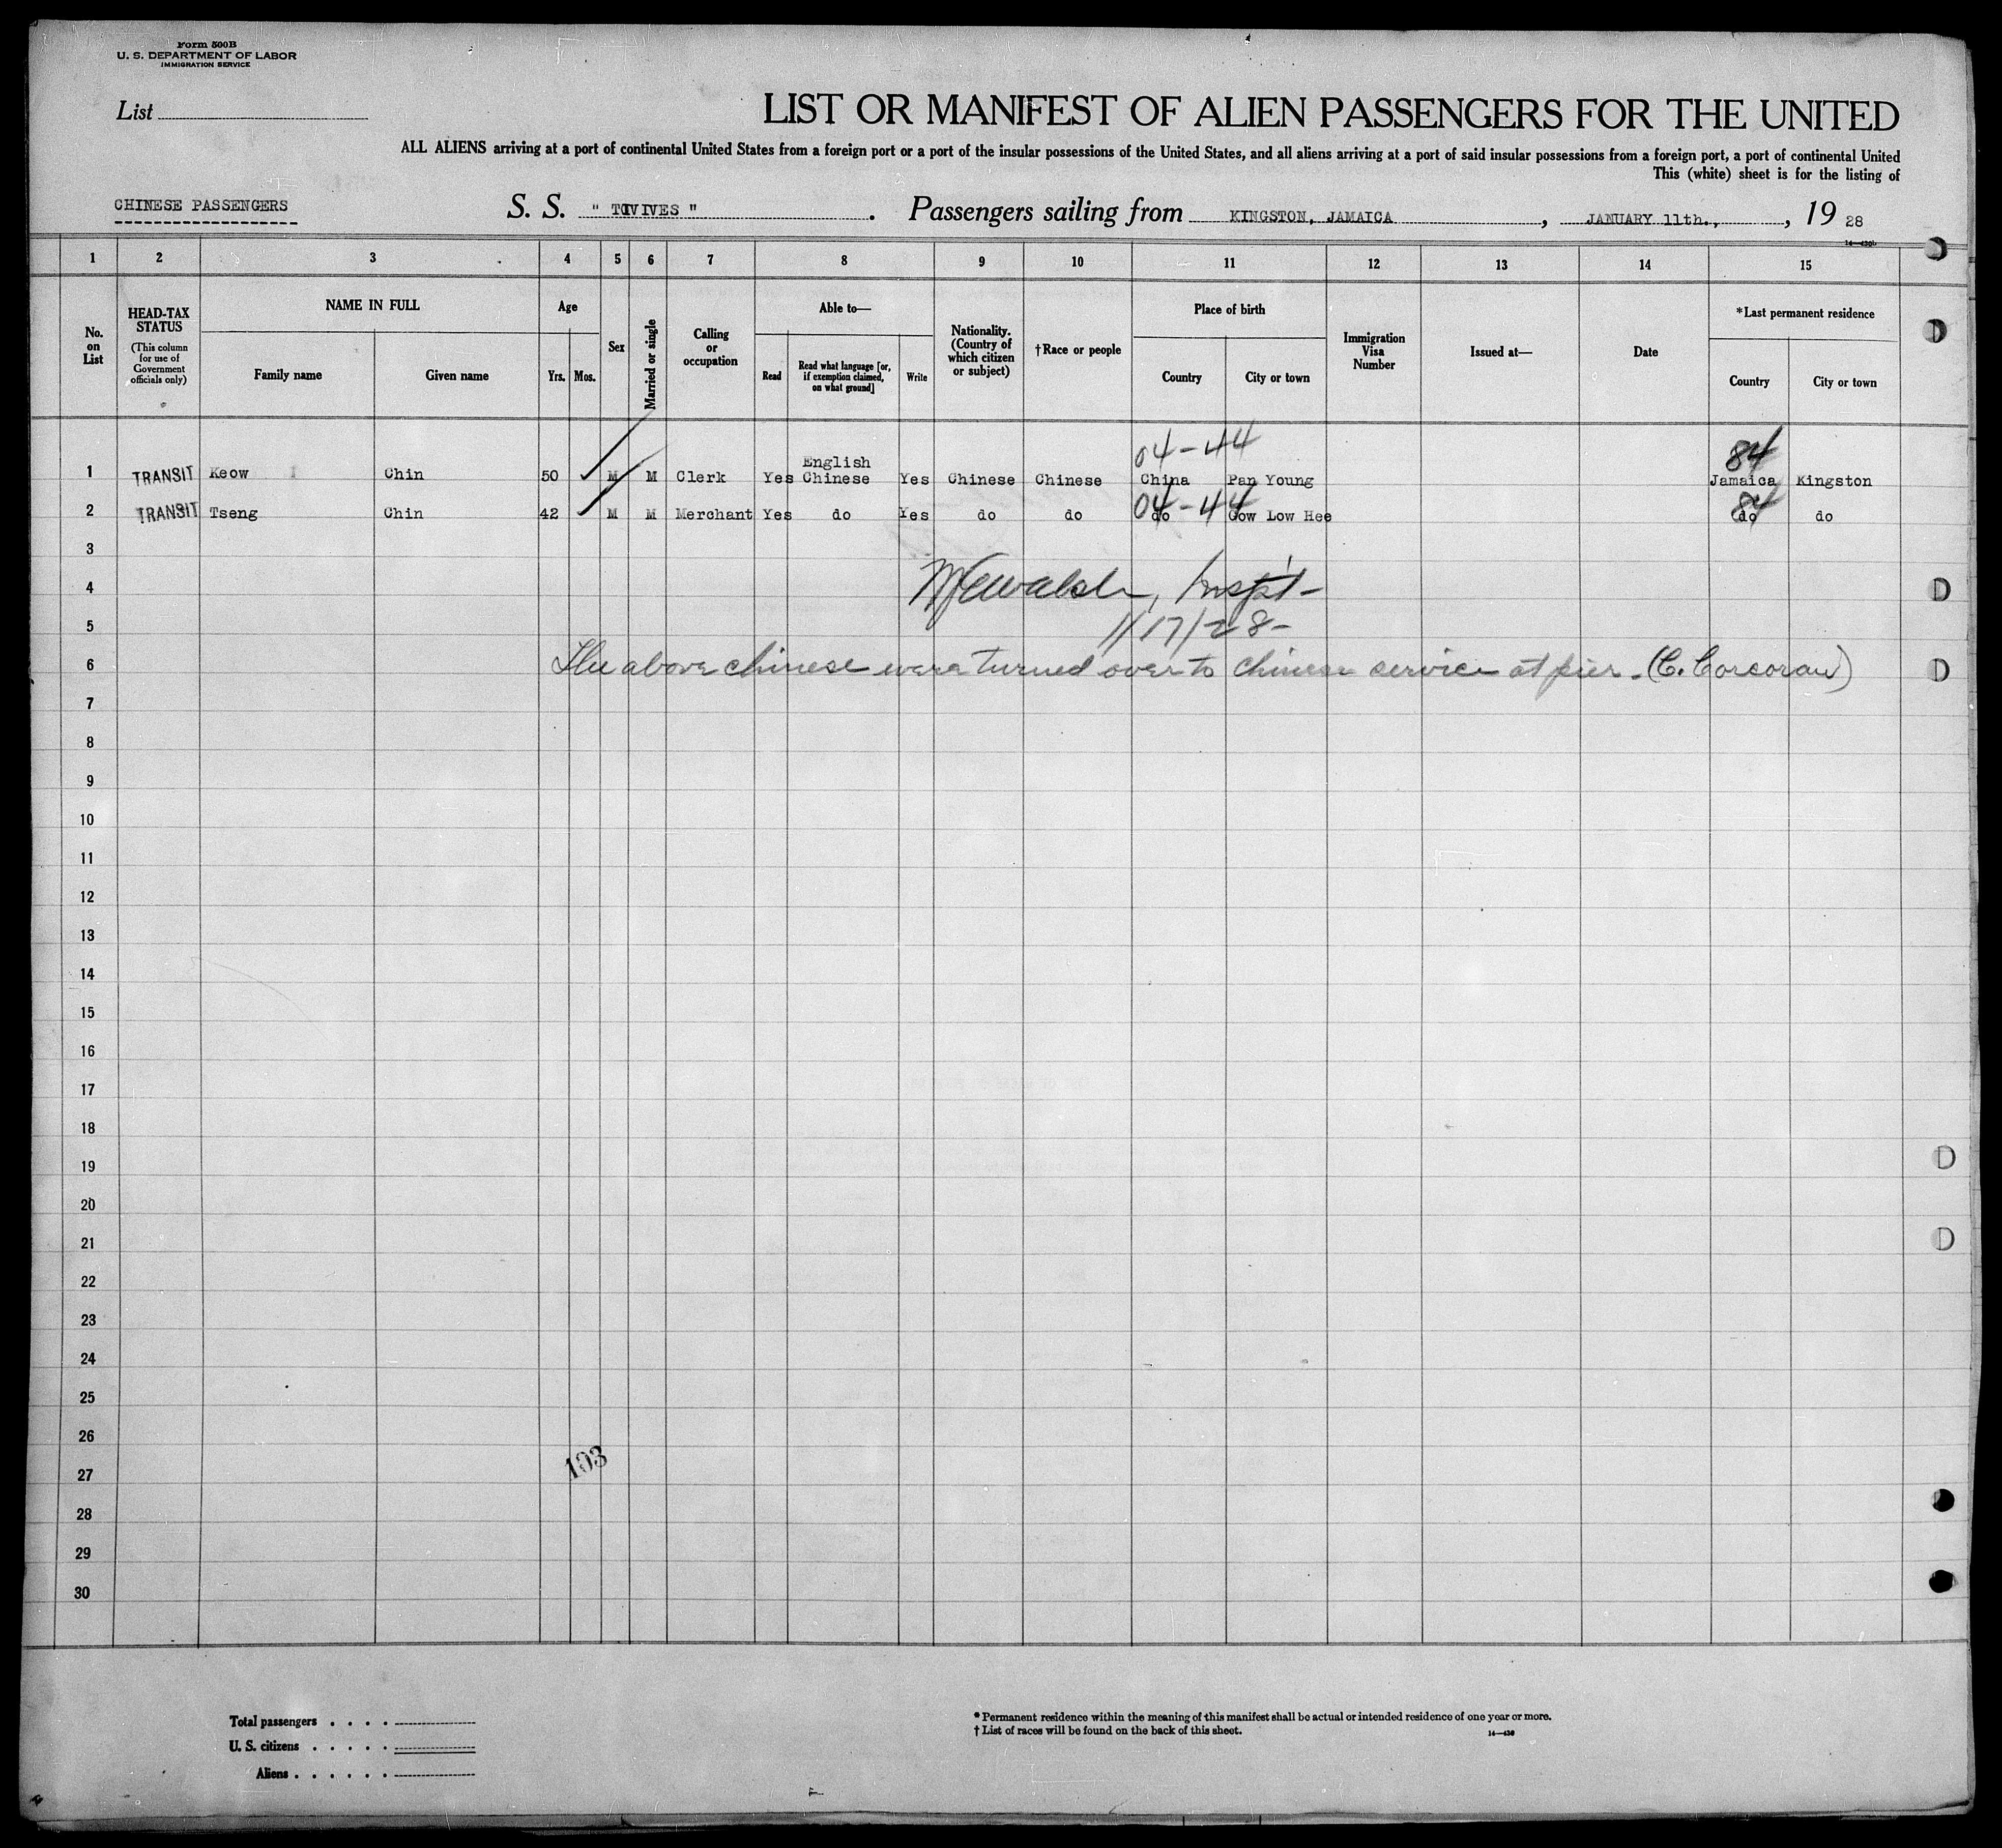 Form 500B
U. S. DEPARTMENT OF LABOR
IMMIGRATION SERVICE
List
LIST OR MANIFEST OF ALIEN PASSENGERS FOR THE UNITED
ALL ALIENS arriving at a port of continental United States from a foreign port or a port of the insular possessions of the United States, and all aliens arriving at a port of said insular possessions from a foreign port, a port of continental United
This (white) sheet is for the listing of
CHINESE PASSENGERS S. S. " TOVIVES ". Passengers sailing from KINGSTON, JAMAICA, JANUARY 11th., , 19 28
1 2 3 4 5 6 7 8 9 10 11 12 13 14 15
No. on List
HEAD-TAX STATUS (This column for use of Government officials only)
NAME IN FULL Family name Given name
Age Yrs. Mos.
Sex
Married or single
Calling or occupation
Able to— Read Read what language [or, if exemption claimed, on what ground] Write
Nationality. (Country of which citizen or subject)
†Race or people
Place of birth Country City or town
Immigration Visa Number
Issued at—
Date
*Last permanent residence Country City or town
04-44 84
1 TRANSIT Keow Chin 50 M M Clerk Yes English Chinese Yes Chinese Chinese China Pan Young Jamaica Kingston
04-44 84
2 TRANSIT Tseng Chin 42 M M Merchant Yes do Yes do do do Gow Low Hee do do
3
4 Walsh, Inspt-
5 1/17/28-
6 The above chinese were turned over to chinese service at pier. (C. Corcoran)
7
8
9
10
11
12
13
14
15
16
17
18
19
20
21
22
23
24
25
26
27 103
28
29
30
Total passengers
U. S. citizens
Aliens
* Permanent residence within the meaning of this manifest shall be actual or intended residence of one year or more.
† List of races will be found on the back of this sheet.
14—430